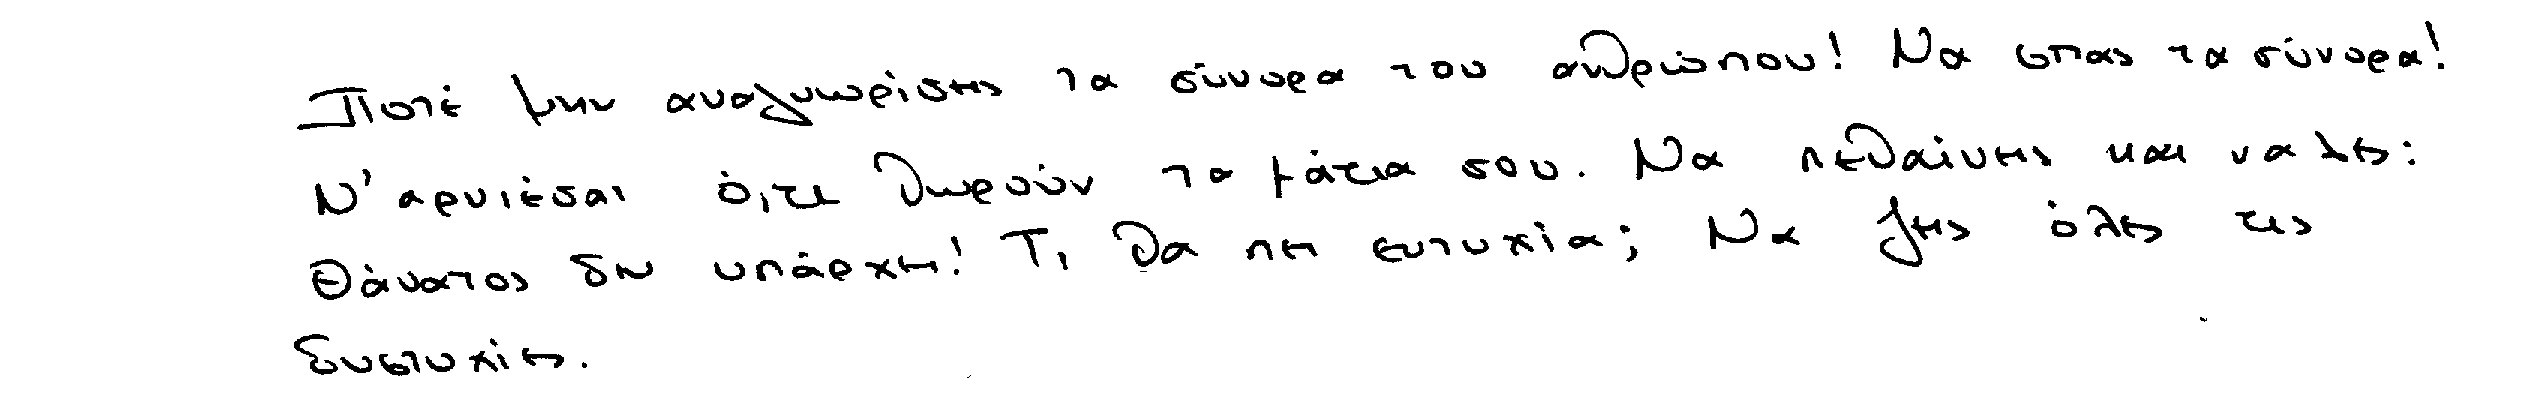 Ποτέ μην αναγνωρίσεις τα σύνορα του ανθρώπου! Να σπας τα σύνορα!
Ν' αρνιέσαι ό,τι θωρούν τα μάτια σου. Να πεθαίνεις και να λες:
Θάνατος δεν υπάρχει! Τι θα πει ευτυχία; Να ζεις όλες τις
δυστυχίες.